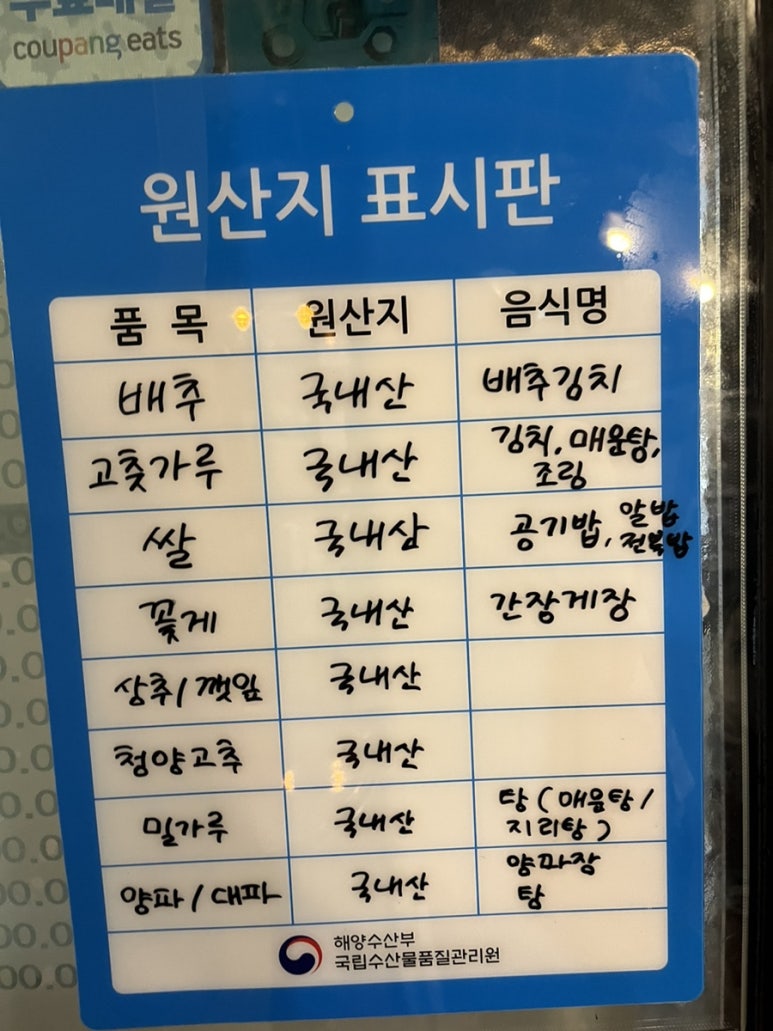 coupang eats
원산지 표시판
품 목 원산지 음식명
배추 국내산 배추김치
고춧가루 국내산 김치, 매운탕,
조림
쌀 국내삼 공기밥, 알밥
전복밥
꽃게 국내산 간장게장
상추/깻잎 국내산
청양고추 국내산
밀가루 국내산 탕(매운탕/
지리탕)
양파/대파 국내산 양파장
탕
해양수산부
국립수산물품질관리원